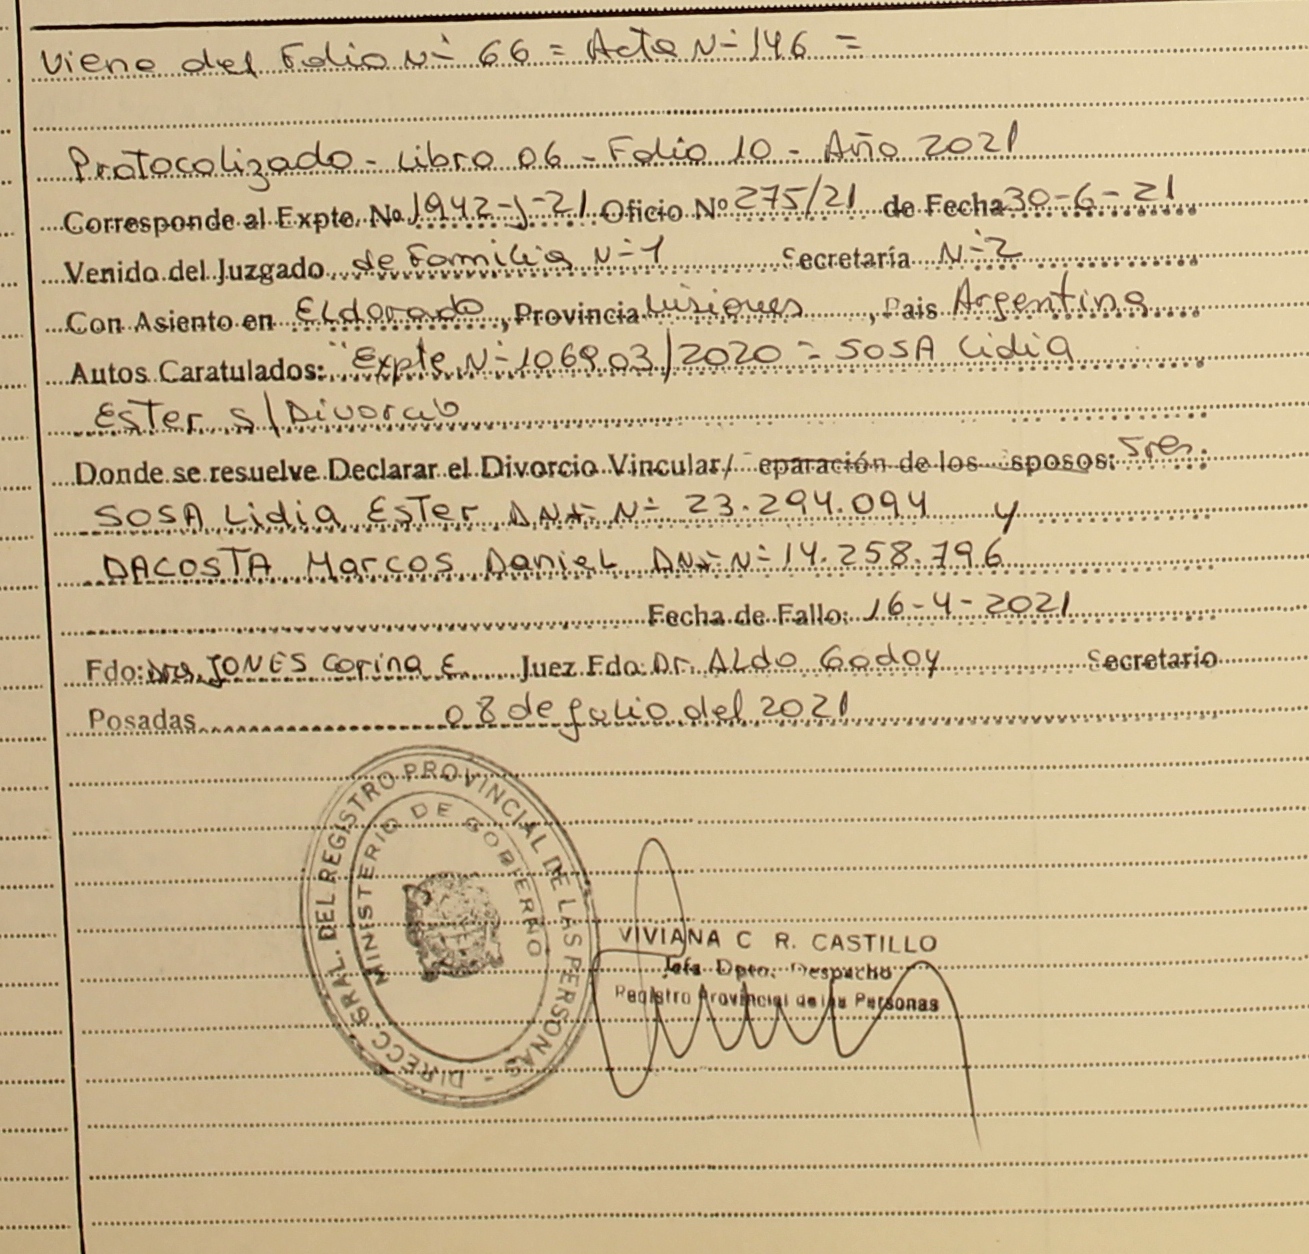 Viene del Folio N° 66 = Acta N° 146 =
Protocolizado - Libro 06 - Folio 10 - Año 2021
Corresponde al Expte. Nº 1942-J-21 Oficio Nº 275/21 de Fecha 30-6-21
Venido del Juzgado de Familia N° 1 Secretaría N° 2
Con Asiento en Eldorado, Provincia Misiones, Pais Argentina
Autos Caratulados: "Expte N° 106903/2020 = SOSA Lidia
Ester s/Divorcio
Donde se resuelve Declarar el Divorcio Vincular/ eparación de los sposos: Sres.
SOSA Lidia Ester DNI N° 23.294.094 y
DACOSTA Marcos Daniel DNI N° 14.258.796
Fecha de Fallo: 16-4-2021
Fdo: Dra. JONES Corina E. Juez Fdo: Dr. Aldo Godoy Secretario
Posadas 08 de Julio del 2021
DIRECC. GRAL. DEL REGISTRO PROVINCIAL DE LAS PERSONAS -
MINISTERIO DE GOBIERNO
VIVIANA C R. CASTILLO
Jefa Dpto. Despacho
Registro Provincial de las Personas